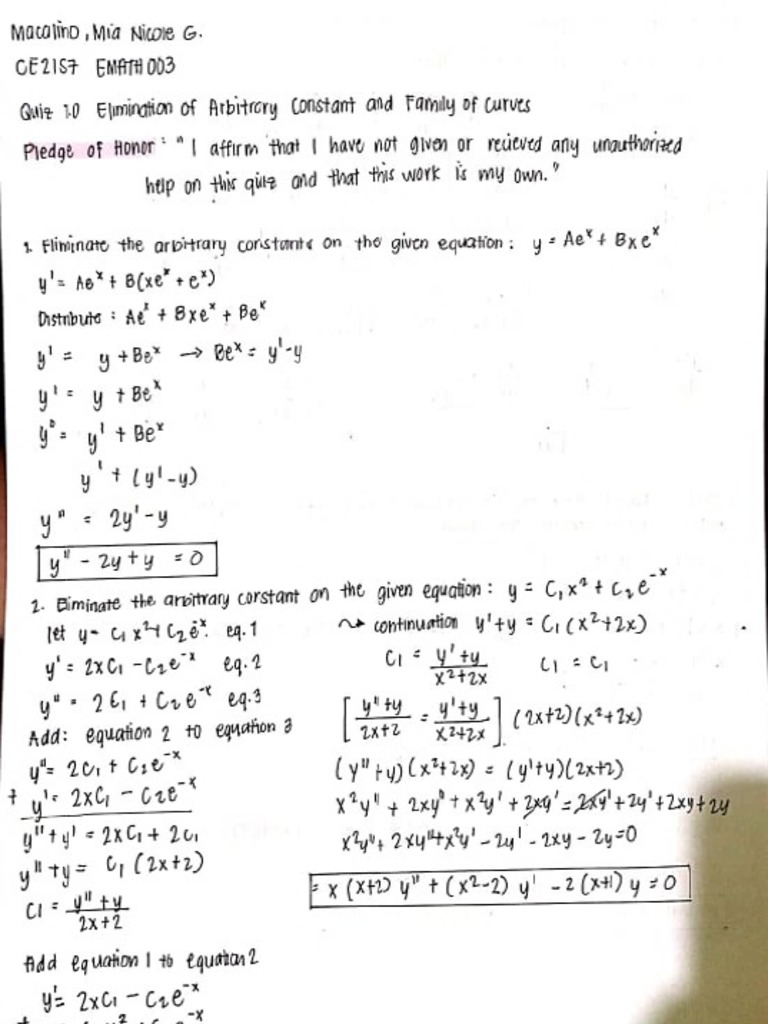 Macalino, Mia Nicole G.
CE21S7 EMATH 003
Quiz 1.0 Elimination of Arbitrary Constant and Family of Curves
Pledge of Honor : "I affirm that I have not given or recieved any unauthorized
help on this quiz and that this work is my own."
1. Eliminate the arbitrary constants on the given equation : y = Ae^x + Bxe^x
y' = Ae^x + B(xe^x + e^x)
Distribute : Ae^x + Bxe^x + Be^x
y' = y + Be^x → Be^x = y' - y
y' = y + Be^x
y" = y' + Be^x
y' + (y' - y)
y" = 2y' - y
y" - 2y + y = 0
2. Eliminate the arbitrary constant on the given equation : y = C₁x² + C₂e^-x
let y = C₁x² + C₂e^-x eq. 1
y' = 2xC₁ - C₂e^-x eq. 2
y" = 2C₁ + C₂e^-x eq. 3
Add: equation 2 to equation 3
y" = 2C₁ + C₂e^-x
+ y' = 2xC₁ - C₂e^-x
y" + y' = 2xC₁ + 2C₁
y" + y = C₁ (2x+2)
C₁ = (y" + y)/(2x+2)
Add equation 1 to equation 2
y' = 2xC₁ - C₂e^-x
continuation y' + y = C₁ (x² + 2x)
C₁ = (y' + y)/(x² + 2x) C₁ = C₁
[(y" + y)/(2x+2) = (y' + y)/(x² + 2x)] (2x+2)(x²+2x)
(y" + y)(x² + 2x) = (y' + y)(2x+2)
x²y" + 2xy" + x²y' + 2xy' = 2xy' + 2y' + 2xy + 2y
x²y" + 2xy" + x²y' - 2y' - 2xy - 2y = 0
= x (x+2) y" + (x²-2) y' - 2 (x+1) y = 0